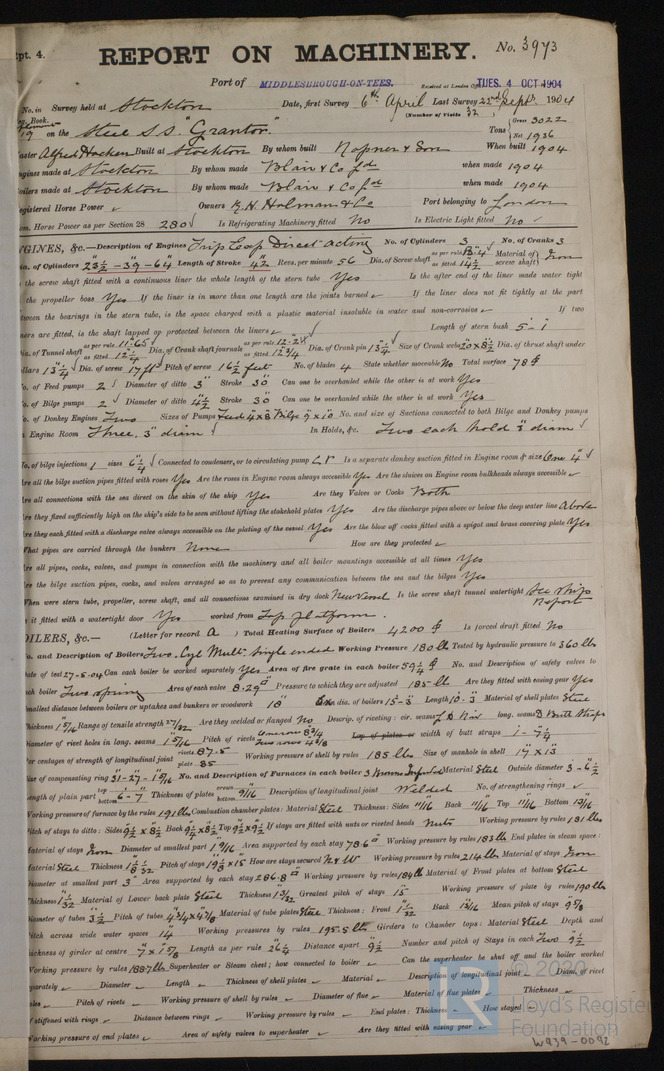 Rpt. 4.
REPORT ON MACHINERY.
No. 3973
Port of MIDDLESBROUGH-ON-TEES.
Received at London Office TUES. 4 OCT 1904
No. in Survey held at Stockton Date, first Survey 6th April Last Survey 22nd Sept 1904
Book. (Number of Visits 32)
19 on the Steel S.S. "Grantor." Tons Gross 3022 Net 1936
Master Alfred Hocken Built at Stockton By whom built Ropner & Son When built 1904
Engines made at Stockton By whom made Blair & Co Ld when made 1904
Boilers made at Stockton By whom made Blair & Co Ld when made 1904
Registered Horse Power Owners R.H. Holman & Co Port belonging to London
Nom. Horse Power as per Section 28 280 Is Refrigerating Machinery fitted No Is Electric Light fitted No
ENGINES, &c.—Description of Engines Trip Comp Direct Acting No. of Cylinders 3 No. of Cranks 3
Dia. of Cylinders 23½ - 39 - 64 Length of Stroke 42 Revs. per minute 56 Dia. of Screw shaft as per rule 13.4 as fitted 14½ Material of screw shaft Iron
Is the screw shaft fitted with a continuous liner the whole length of the stern tube Yes Is the after end of the liner made water tight
in the propeller boss Yes If the liner is in more than one length are the joints burned If the liner does not fit tightly at the part
between the bearings in the stern tube, is the space charged with a plastic material insoluble in water and non-corrosive If two
liners are fitted, is the shaft lapped or protected between the liners Length of stern bush 5'-1"
Dia. of Tunnel shaft as per rule 11.65 as fitted 12¼ Dia. of Crank shaft journals as per rule 12.2 as fitted 12¾ Dia. of Crank pin 13¼ Size of Crank webs 20x8½ Dia. of thrust shaft under
collars 13¼ Dia. of screw 17 ft Pitch of screw 16½ feet No. of blades 4 State whether moveable No Total surface 78
No. of Feed pumps 2 Diameter of ditto 3" Stroke 30 Can one be overhauled while the other is at work Yes
No. of Bilge pumps 2 Diameter of ditto 4½ Stroke 30 Can one be overhauled while the other is at work Yes
No. of Donkey Engines Two Sizes of Pumps Feed 4x8 Bilge 9x10 No. and size of Suctions connected to both Bilge and Donkey pumps
In Engine Room Three, 3" diam In Holds, &c. Two each hold 3" diam
No. of bilge injections 1 sizes 6¼ Connected to condenser, or to circulating pump C.P. Is a separate donkey suction fitted in Engine room & size One 4"
Are all the bilge suction pipes fitted with roses Yes Are the roses in Engine room always accessible Yes Are the sluices on Engine room bulkheads always accessible
Are all connections with the sea direct on the skin of the ship Yes Are they Valves or Cocks Both
Are they fixed sufficiently high on the ship's side to be seen without lifting the stokehold plates Yes Are the discharge pipes above or below the deep water line Above
Are they each fitted with a discharge valve always accessible on the plating of the vessel Yes Are the blow off cocks fitted with a spigot and brass covering plate Yes
What pipes are carried through the bunkers None How are they protected
Are all pipes, cocks, valves, and pumps in connection with the machinery and all boiler mountings accessible at all times Yes
Are the bilge suction pipes, cocks, and valves arranged so as to prevent any communication between the sea and the bilges Yes
When were stern tube, propeller, screw shaft, and all connections examined in dry dock New Vessel Is the screw shaft tunnel watertight See Ships Report
Is it fitted with a watertight door Yes worked from Top platform.
BOILERS, &c.— (Letter for record A ) Total Heating Surface of Boilers 4200 Is forced draft fitted No
No. and Description of Boilers Two. Cyl. Mult. Single ended Working Pressure 180 lb Tested by hydraulic pressure to 360 lb
Date of test 27-5-04 Can each boiler be worked separately Yes Area of fire grate in each boiler 59¼ No. and Description of safety valves to
each boiler Two spring Area of each valve 8.29" Pressure to which they are adjusted 185 lb Are they fitted with easing gear Yes
Smallest distance between boilers or uptakes and bunkers or woodwork 18" dia. of boilers 15'-3" Length 10'-3" Material of shell plates Steel
Thickness 1 5/16 Range of tensile strength 27/32 Are they welded or flanged No Descrip. of riveting: cir. seams long. seams D Butt Straps
Diameter of rivet holes in long. seams 1 5/16 Pitch of rivets One row 8¾ Two rows 4 3/8 Lap of plates or width of butt straps 1'-7¾"
Per centages of strength of longitudinal joint rivets 87.5 plate 85 Working pressure of shell by rules 185 lbs Size of manhole in shell 17" x 13"
Size of compensating ring 31-27-1 5/16 No. and Description of Furnaces in each boiler 3 Material Steel Outside diameter 3'-6½"
Length of plain part top bottom 6'-7" Thickness of plates crown bottom 9/16 Description of longitudinal joint Welded No. of strengthening rings
Working pressure of furnace by the rules 191 lb Combustion chamber plates: Material Steel Thickness: Sides 11/16 Back 11/16 Top 11/16 Bottom 13/16
Pitch of stays to ditto: Sides 9¼ x 8½ Back 9¼ x 8½ Top 9½ x 9½ If stays are fitted with nuts or riveted heads Nuts Working pressure by rules 181 lbs
Material of stays Iron Diameter at smallest part 1 9/16 Area supported by each stay 78.6 Working pressure by rules 183 lb End plates in steam space:
Material Steel Thickness 1 5/32 Pitch of stays 19 5/8 x 15 How are stays secured N & W Working pressure by rules 214 lbs Material of stays Iron
Diameter at smallest part 3" Area supported by each stay 286.8 Working pressure by rules 184 lb Material of Front plates at bottom Steel
Thickness 1 1/32 Material of Lower back plate Steel Thickness 1 3/32 Greatest pitch of stays 15" Working pressure of plate by rules 190 lbs
Diameter of tubes 3½ Pitch of tubes 4¾ x 4 7/8 Material of tube plates Steel Thickness: Front 1 1/32 Back 13/16 Mean pitch of stays 9 5/8
Pitch across wide water spaces 14" Working pressures by rules 195.5 lb Girders to Chamber tops: Material Steel Depth and
thickness of girder at centre 7" x 1 5/8 Length as per rule 26¼ Distance apart 9½ Number and pitch of Stays in each Two 9½
Working pressure by rules 188.7 lbs Superheater or Steam chest; how connected to boiler Can the superheater be shut off and the boiler worked
separately Diameter Length Thickness of shell plates Material Description of longitudinal joint Diam. of rivet
holes Pitch of rivets Working pressure of shell by rules Diameter of flue Material of flue plates Thickness
If stiffened with rings Distance between rings Working pressure by rules End plates: Thickness How stayed
Working pressure of end plates Area of safety valves to superheater Are they fitted with easing gear
© 2020
Lloyd's Register
Foundation
W939-0092